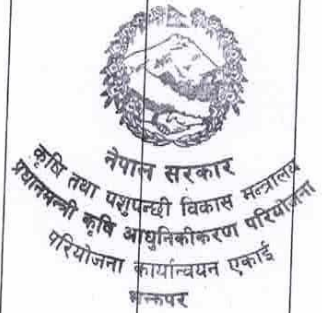 नेपाल सरकार
कृषि तथा पशुपन्छी विकास मन्त्रालय
प्रधानमन्त्री कृषि आधुनिकीकरण परियोजना
परियोजना कार्यान्वयन एकाई
भक्तपुर